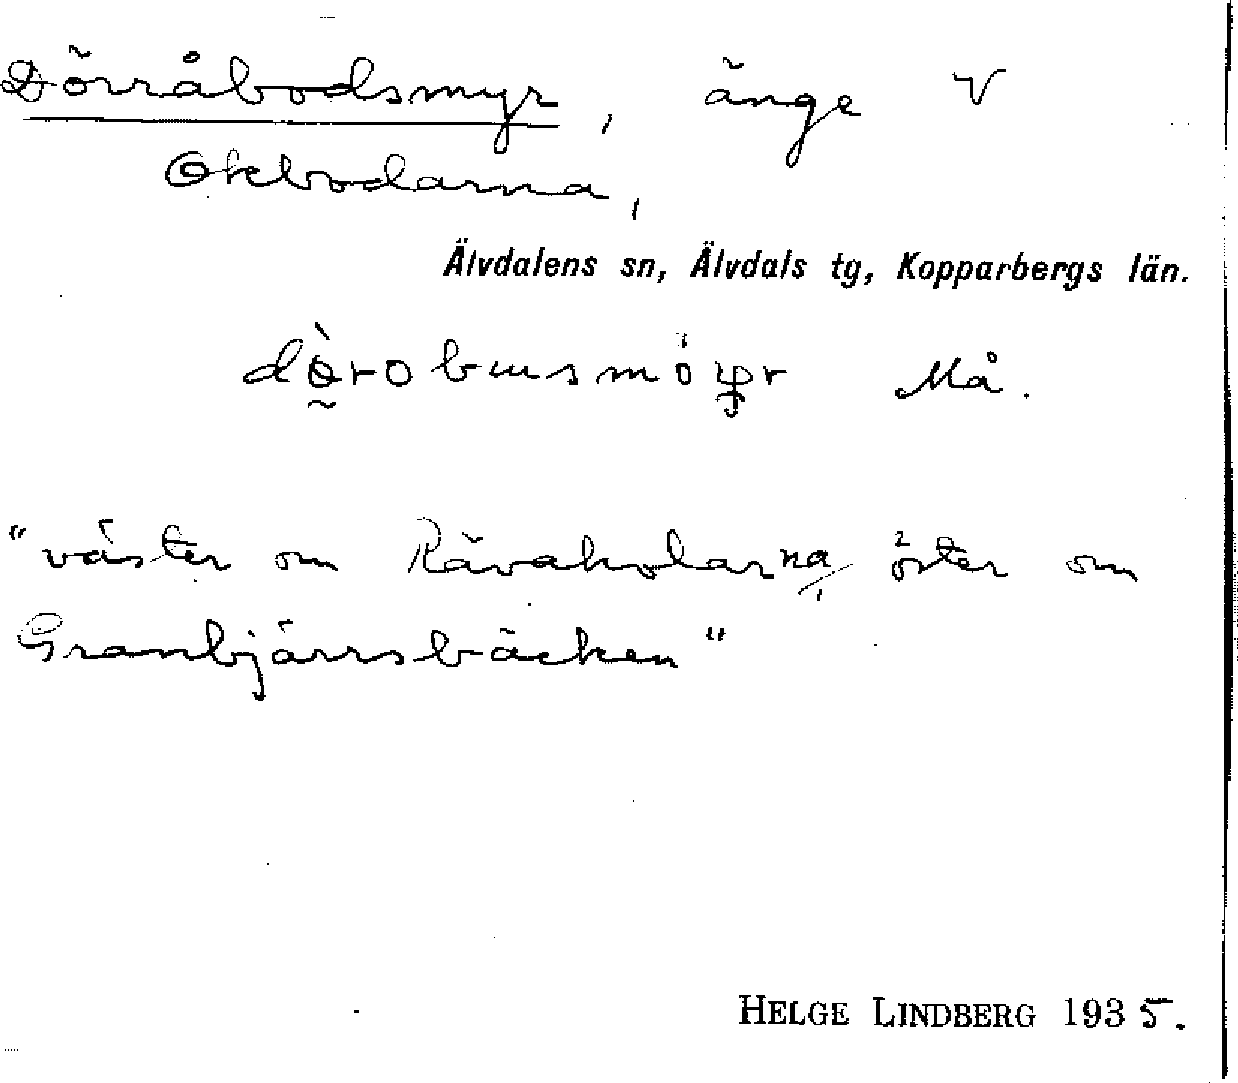 Dörråbodsmyr, änge V
Okbodarna,
Älvdalens sn, Älvdals tg, Kopparbergs län.
Må.
"väster om Rävaholarna, öster om
Granbjärrsbäcken"
HELGE LINDBERG 1935.